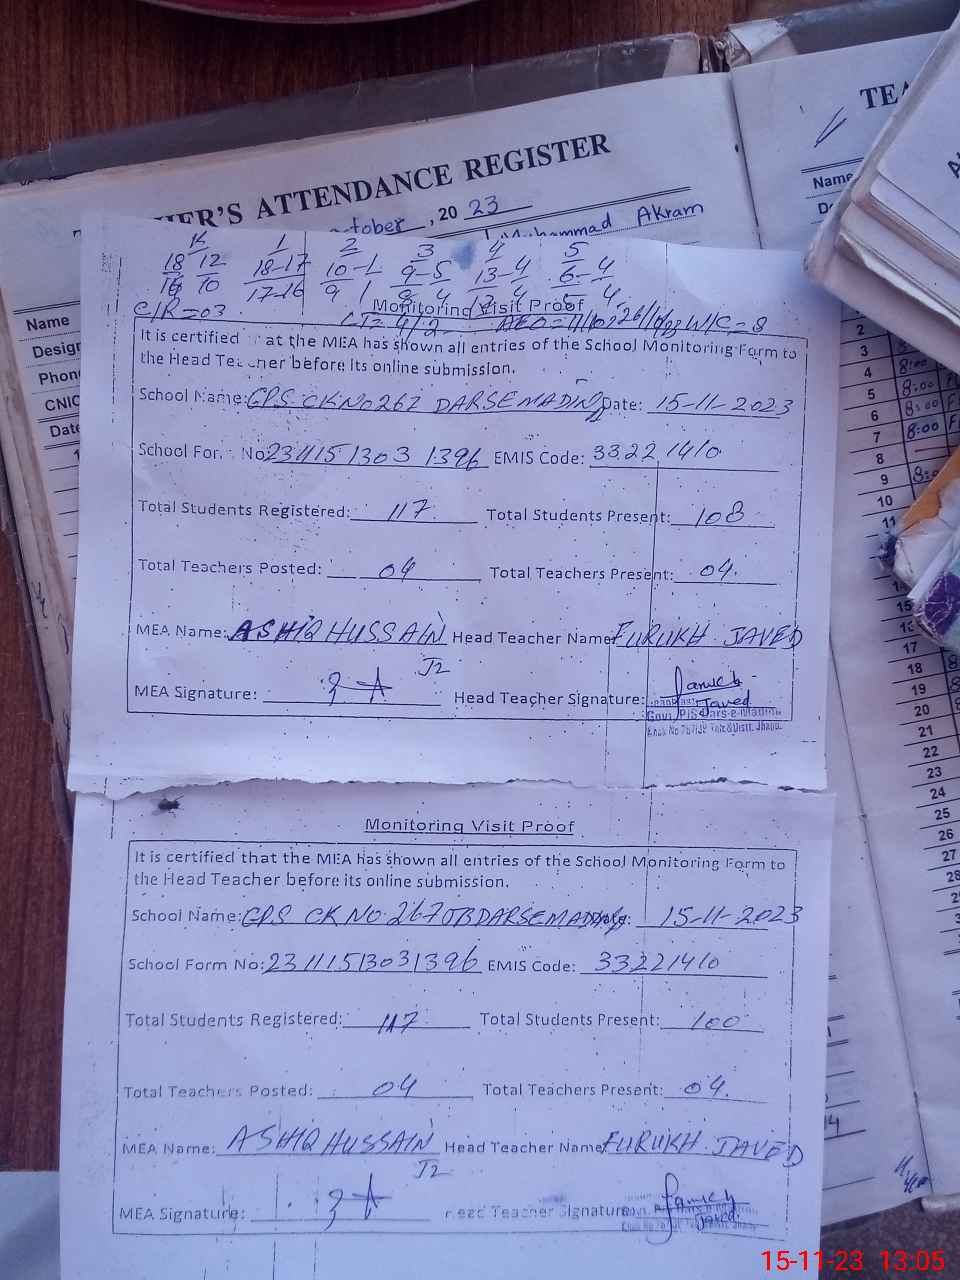 TEACHER'S ATTENDANCE REGISTER
October, 2023
Muhammad Akram
Name
Phon
CNIC
Date
K 1 2 3 4 5
18 12 18-17 10-1 9-5 13-4 6-4
16 10 17-16 9 1 8 4 12 4 5 4
C/R=03
Monitoring Visit Proof
W/C=8
It is certified that the MEA has shown all entries of the School Monitoring Form to
the Head Teacher before its online submission.
School Name: GPS CK No 267 DARSEMADINA Date: 15-11-2023
School Form No: 23111513031396 EMIS Code: 33221410
Total Students Registered: 117 Total Students Present: 108
Total Teachers Posted: 04 Total Teachers Present: 04.
MEA Name: ASHIQ HUSSAIN Head Teacher Name FURUKH JAVED
J2
MEA Signature: Head Teacher Signature:
Javed
Monitoring Visit Proof
It is certified that the MEA has shown all entries of the School Monitoring Form to
the Head Teacher before its online submission.
School Name: GPS CK NO. 267 JB DARSEMADINA Date: 15-11-2023
School Form No: 23111513031396 EMIS Code: 33221410
Total Students Registered: 117 Total Students Present: 100
Total Teachers Posted: 04 Total Teachers Present: 04.
MEA Name: ASHIQ HUSSAIN Head Teacher Name FURUKH JAVED
J2
MEA Signature: Head Teacher Signature
Javed
TEA
Name
2
3
4 8:00
5 8:00
6 8:00
7 8:00
8
9
10
11
15
17
18
19
20
21
22
23
24
25
26
27
28
15-11-23 13:05